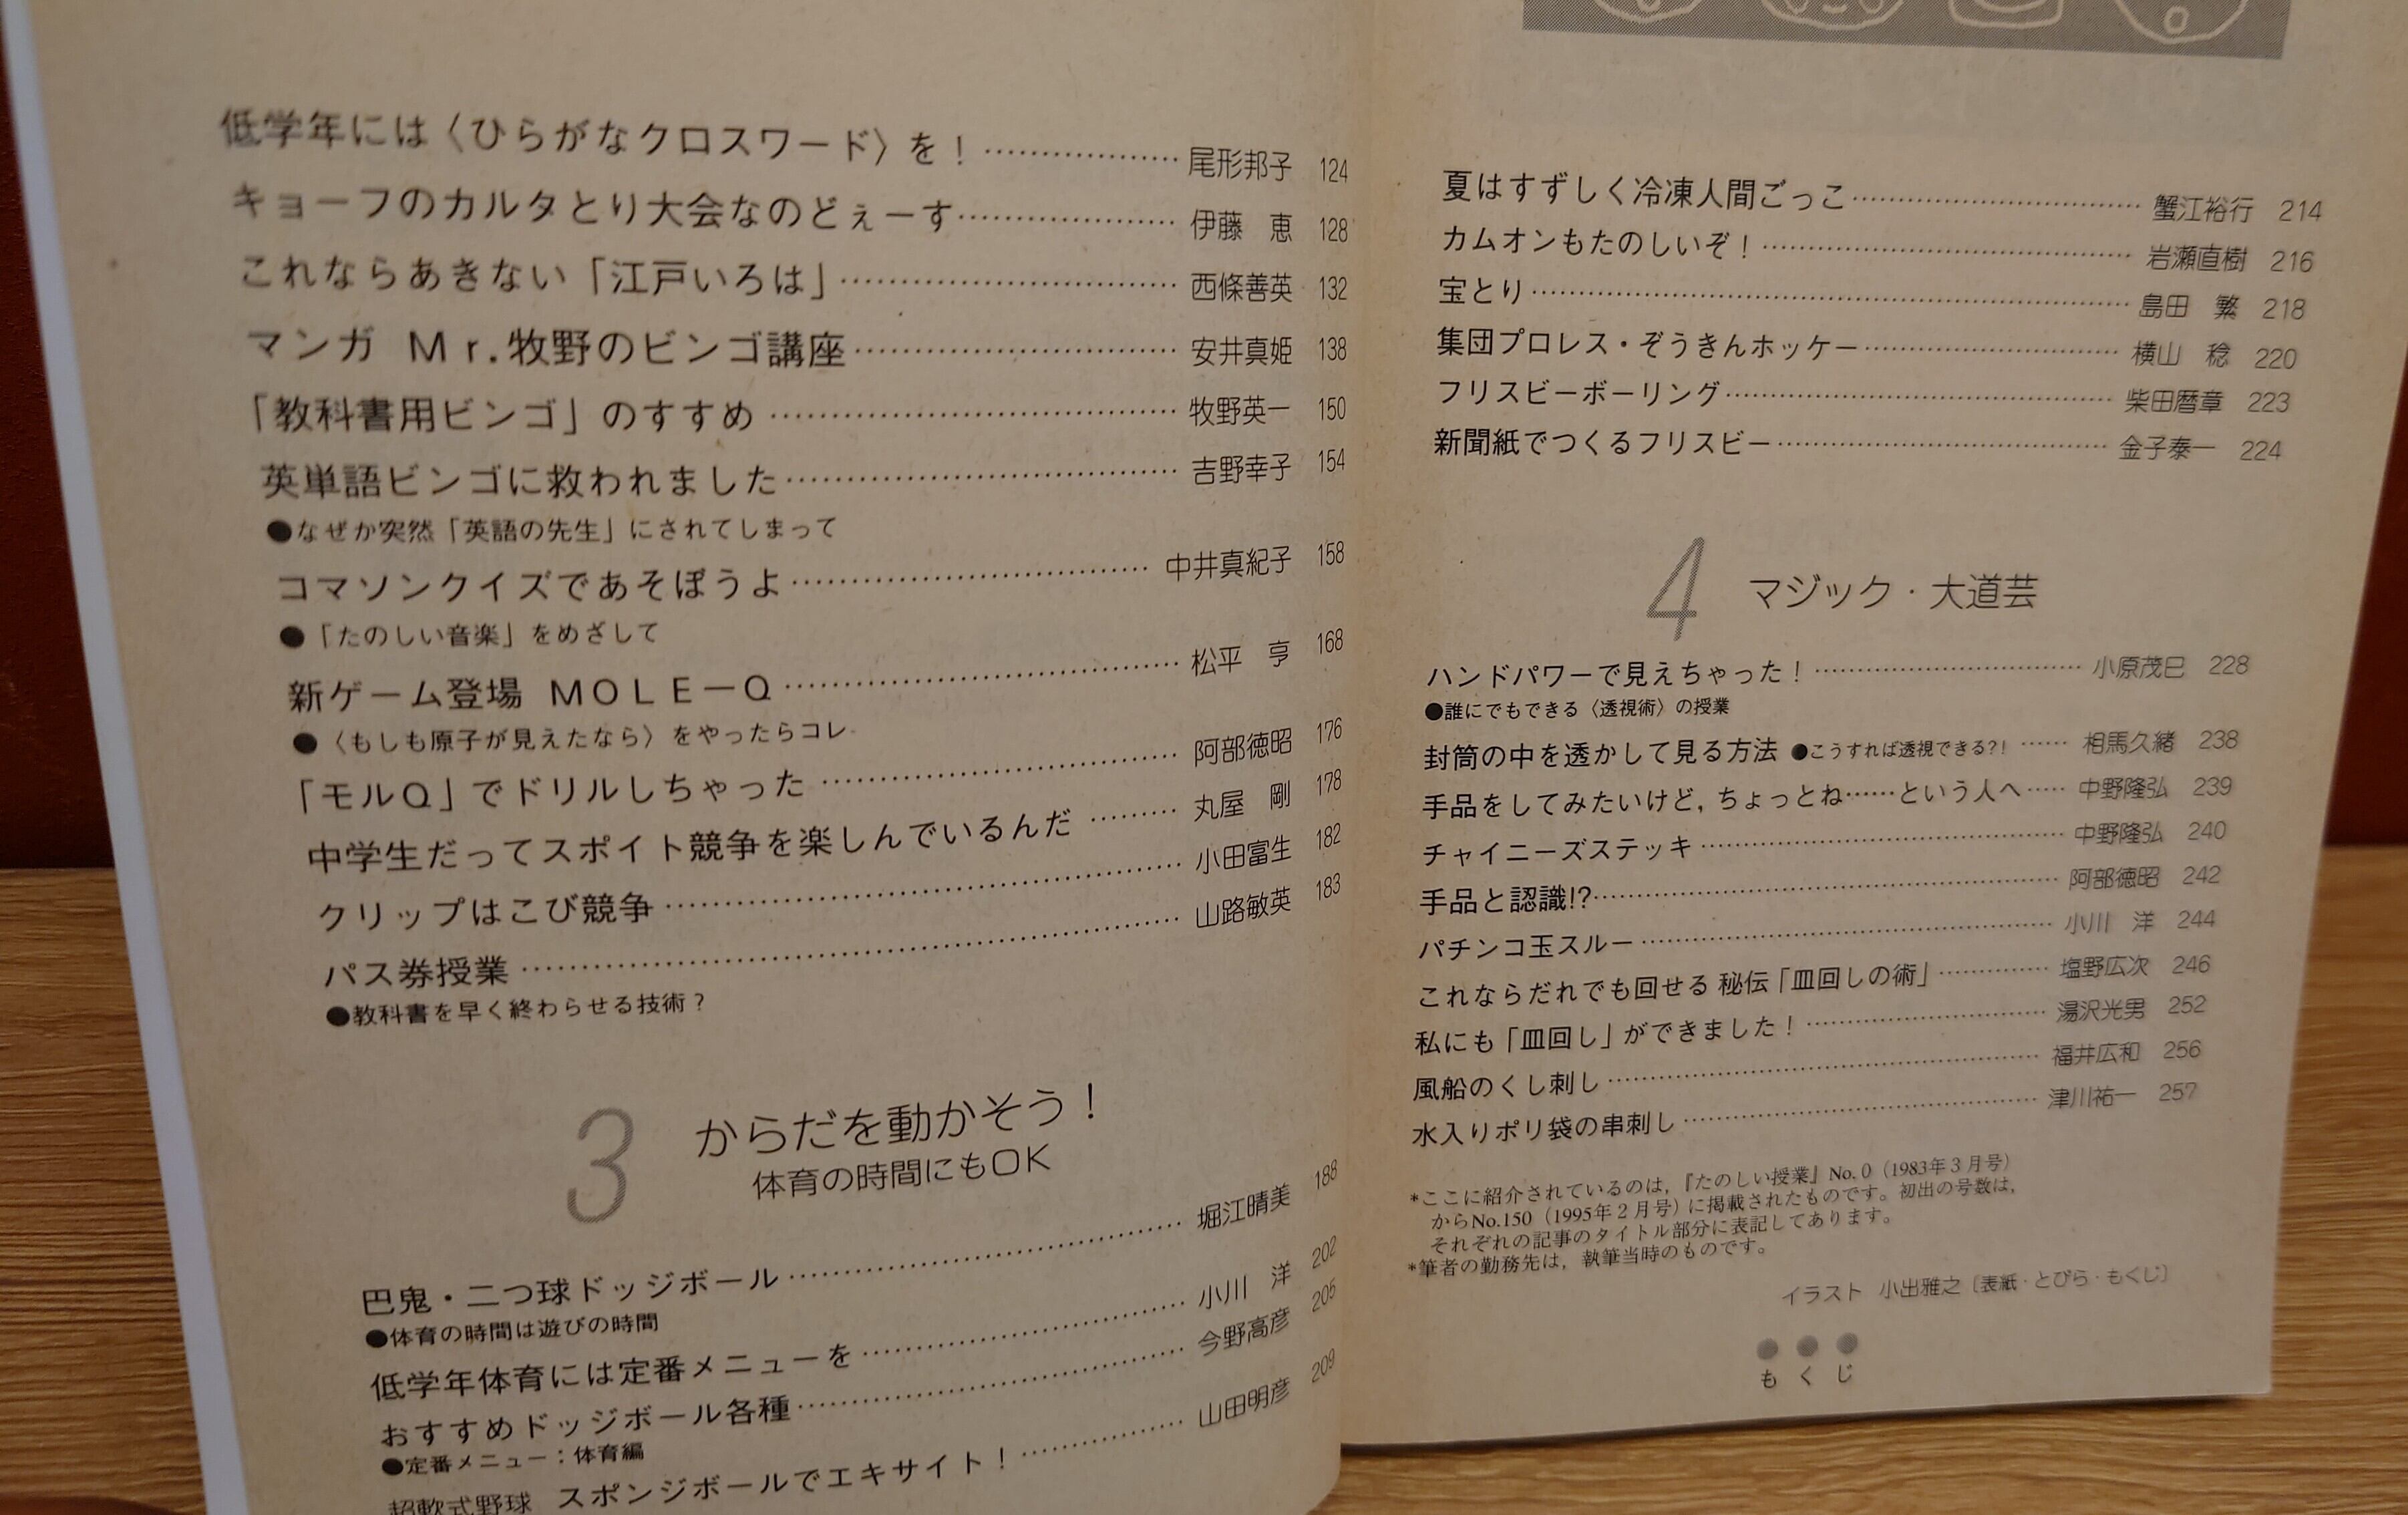 低学年には〈ひらがなクロスワード〉を！ ………………… 尾形邦子 124
キョーフのカルタとり大会なのどぇーす………………… 伊藤 恵 128
これならあきない「江戸いろは」………………… 西條善英 132
マンガ Ｍｒ.牧野のビンゴ講座………………… 安井真姫 138
「教科書用ビンゴ」のすすめ ………………… 牧野英一 150
英単語ビンゴに救われました………………… 吉野幸子 154
●なぜか突然「英語の先生」にされてしまって
コマソンクイズであそぼうよ………………… 中井真紀子 158
●「たのしい音楽」をめざして
新ゲーム登場 ＭＯＬＥ－Ｑ ………………… 松平 亨 168
●〈もしも原子が見えたなら〉をやったらコレ
「モルＱ」でドリルしちゃった ………………… 阿部徳昭 176
中学生だってスポイト競争を楽しんでいるんだ ……… 丸屋 剛 178
クリップはこび競争 ………………… 小田富生 182
パス券授業 ………………… 山路敏英 183
●教科書を早く終わらせる技術？
3 からだを動かそう！
体育の時間にもOK
巴鬼・二つ球ドッジボール ………………… 堀江晴美 188
●体育の時間は遊びの時間
低学年体育には定番メニューを ………………… 小川 洋 202
おすすめドッジボール各種………………… 今野高彦 205
●定番メニュー：体育編
超軟式野球 スポンジボールでエキサイト！ ………………… 山田明彦 209
夏はすずしく冷凍人間ごっこ………………… 蟹江裕行 214
カムオンもたのしいぞ！………………… 岩瀬直樹 216
宝とり………………… 島田 繁 218
集団プロレス・ぞうきんホッケー………………… 横山 稔 220
フリスビーボーリング………………… 柴田暦章 223
新聞紙でつくるフリスビー………………… 金子泰一 224
4 マジック・大道芸
ハンドパワーで見えちゃった！ ………………… 小原茂巳 228
●誰にでもできる〈透視術〉の授業
封筒の中を透かして見る方法 ●こうすれば透視できる?! …… 相馬久緒 238
手品をしてみたいけど，ちょっとね……という人へ…… 中野隆弘 239
チャイニーズステッキ ………………… 中野隆弘 240
手品と認識!?………………… 阿部徳昭 242
パチンコ玉スルー ………………… 小川 洋 244
これならだれでも回せる 秘伝「皿回しの術」………… 塩野広次 246
私にも「皿回し」ができました！ ………………… 湯沢光男 252
風船のくし刺し ………………… 福井広和 256
水入りポリ袋の串刺し ………………… 津川祐一 257
＊ここに紹介されているのは，『たのしい授業』No. 0（1983年３月号）
からNo.150（1995年２月号）に掲載されたものです。初出の号数は，
それぞれの記事のタイトル部分に表記してあります。
＊筆者の勤務先は，執筆当時のものです。
イラスト 小出雅之〔表紙・とびら・もくじ〕
もくじ